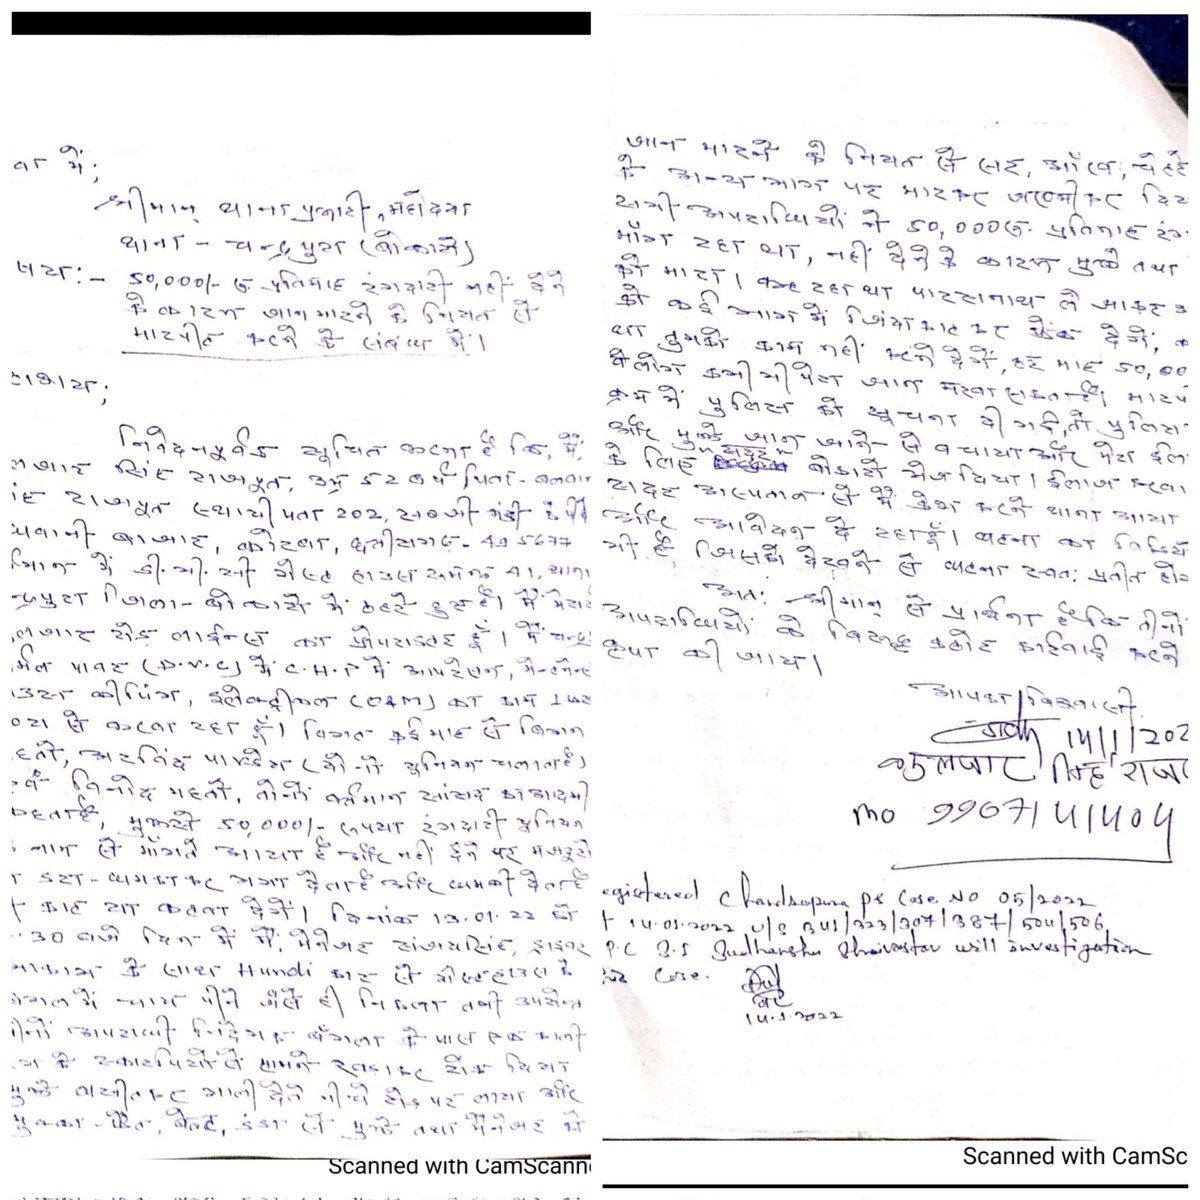 वा में;
श्रीमान् थाना प्रभारी, महोदया
थाना - चन्द्रपुरा (बोकारो)
षय:- 50,000/- रु. प्रतिमाह रंगदारी नहीं देने
के कारण जान मारने के नियत से
मारपीट करने के संबंध में।
हाशय;
निवेदनपूर्वक सूचित करना है कि, मैं,
लजार सिंह राजपूत, उम्र 52 वर्ष पिता- बलवान
सिंह राजपूत स्थायी पता 202, सब्जी मंडी के पीछे
बाजार, कोरबा, छत्तीसगढ़- 495677
में डी.भी.सी गेस्ट हाउस रूम नं० 41, थाना
न्द्रपुरा जिला- बोकारो में ठहरे हुए हैं। मैं मेसर्स
लजार रोड लाईन्स का प्रोपराइटर हूँ। मैं चन्द्र
पावर (D.V.C) में C.H.P में आपरेसन, मेन्टनेन्स
कीपिंग, इलेक्ट्रीकल (O&M) का काम
से करवा रहा हूँ। विगत कई माह से
हतो, अरविंद पाण्डेय (जो युनियन चलाता है)
विनोद महतो, तीनों वर्तमान सांसद का आदमी
कहता है, मुझसे 50,000/- रूपया रंगदारी युनियन
नाम से माँगते आया है और नहीं देने पर मजदूरों
डरा-धमका कर भगा देता है और धमकी देता है
काट या कटवा देंगे। दिनांक 13.01.22 को
30 बजे दिन में मैं, मैनेजर संजय सिंह, ड्राइवर
के साथ Hundi कार से गेस्ट हाउस के
बगल में चाय पीने जैसे ही निकला तभी उपरोक्त
तीनों अपराधी निदेशक बँगला के पास एक काली
रंग के स्कारपियो से सामने रोक दिया
मुझे खींचकर गाली देते नीचे रोड पर लाया और
मुक्का-फैट, बेल्ट, डंडा से मुझे तथा मैनेजर को
जान मारने के नियत से सर, आँख, चेहरे
के अन्य भाग पर मारकर जख्मी कर दिया
सभी अपराधियों ने 50,000 रु. प्रतिमाह रंग
माँग रहा था, नहीं देने के कारण मुझे तथा
को मारा। कह रहा था पारसनाथ से आकर
को कई भाग में जिंदा काट कर फेंक देंगे,
तुमको काम नहीं करने देंगे, हर माह 50,00
ये लोग कभी भी मेरा जान मरवा सकता है। मारपी
क्रम में पुलिस को सूचना दी गई, तो पुलिस
और मुझे जान जाने से बचाया और मेरा ईला
के लिए सदर बोकारो भेज दिया। ईलाज करवा
सदर अस्पताल से मैं केश करने थाना आया
और आवेदन दे रहा हूँ। घटना का विडियो
भी है जिसको देखने से घटना स्वत: प्रतीत होग
अत: श्रीमान् से प्रार्थना है कि तीनों
अपराधियों के विरूद्ध कठोर कार्रवाई करने
कृपा की जाय।
आपका विश्वासी
14/1/202
कुलजार सिंह राज
mo 9907141404
egistered Chandrapura PS Case No 05/2022
14.01.2022 u/s 341/323/307/387/504/506
P.C S.I Sudhanshu Shrivastav will investigation
Case.
14.1.2022
Scanned with CamScann
Scanned with CamSc